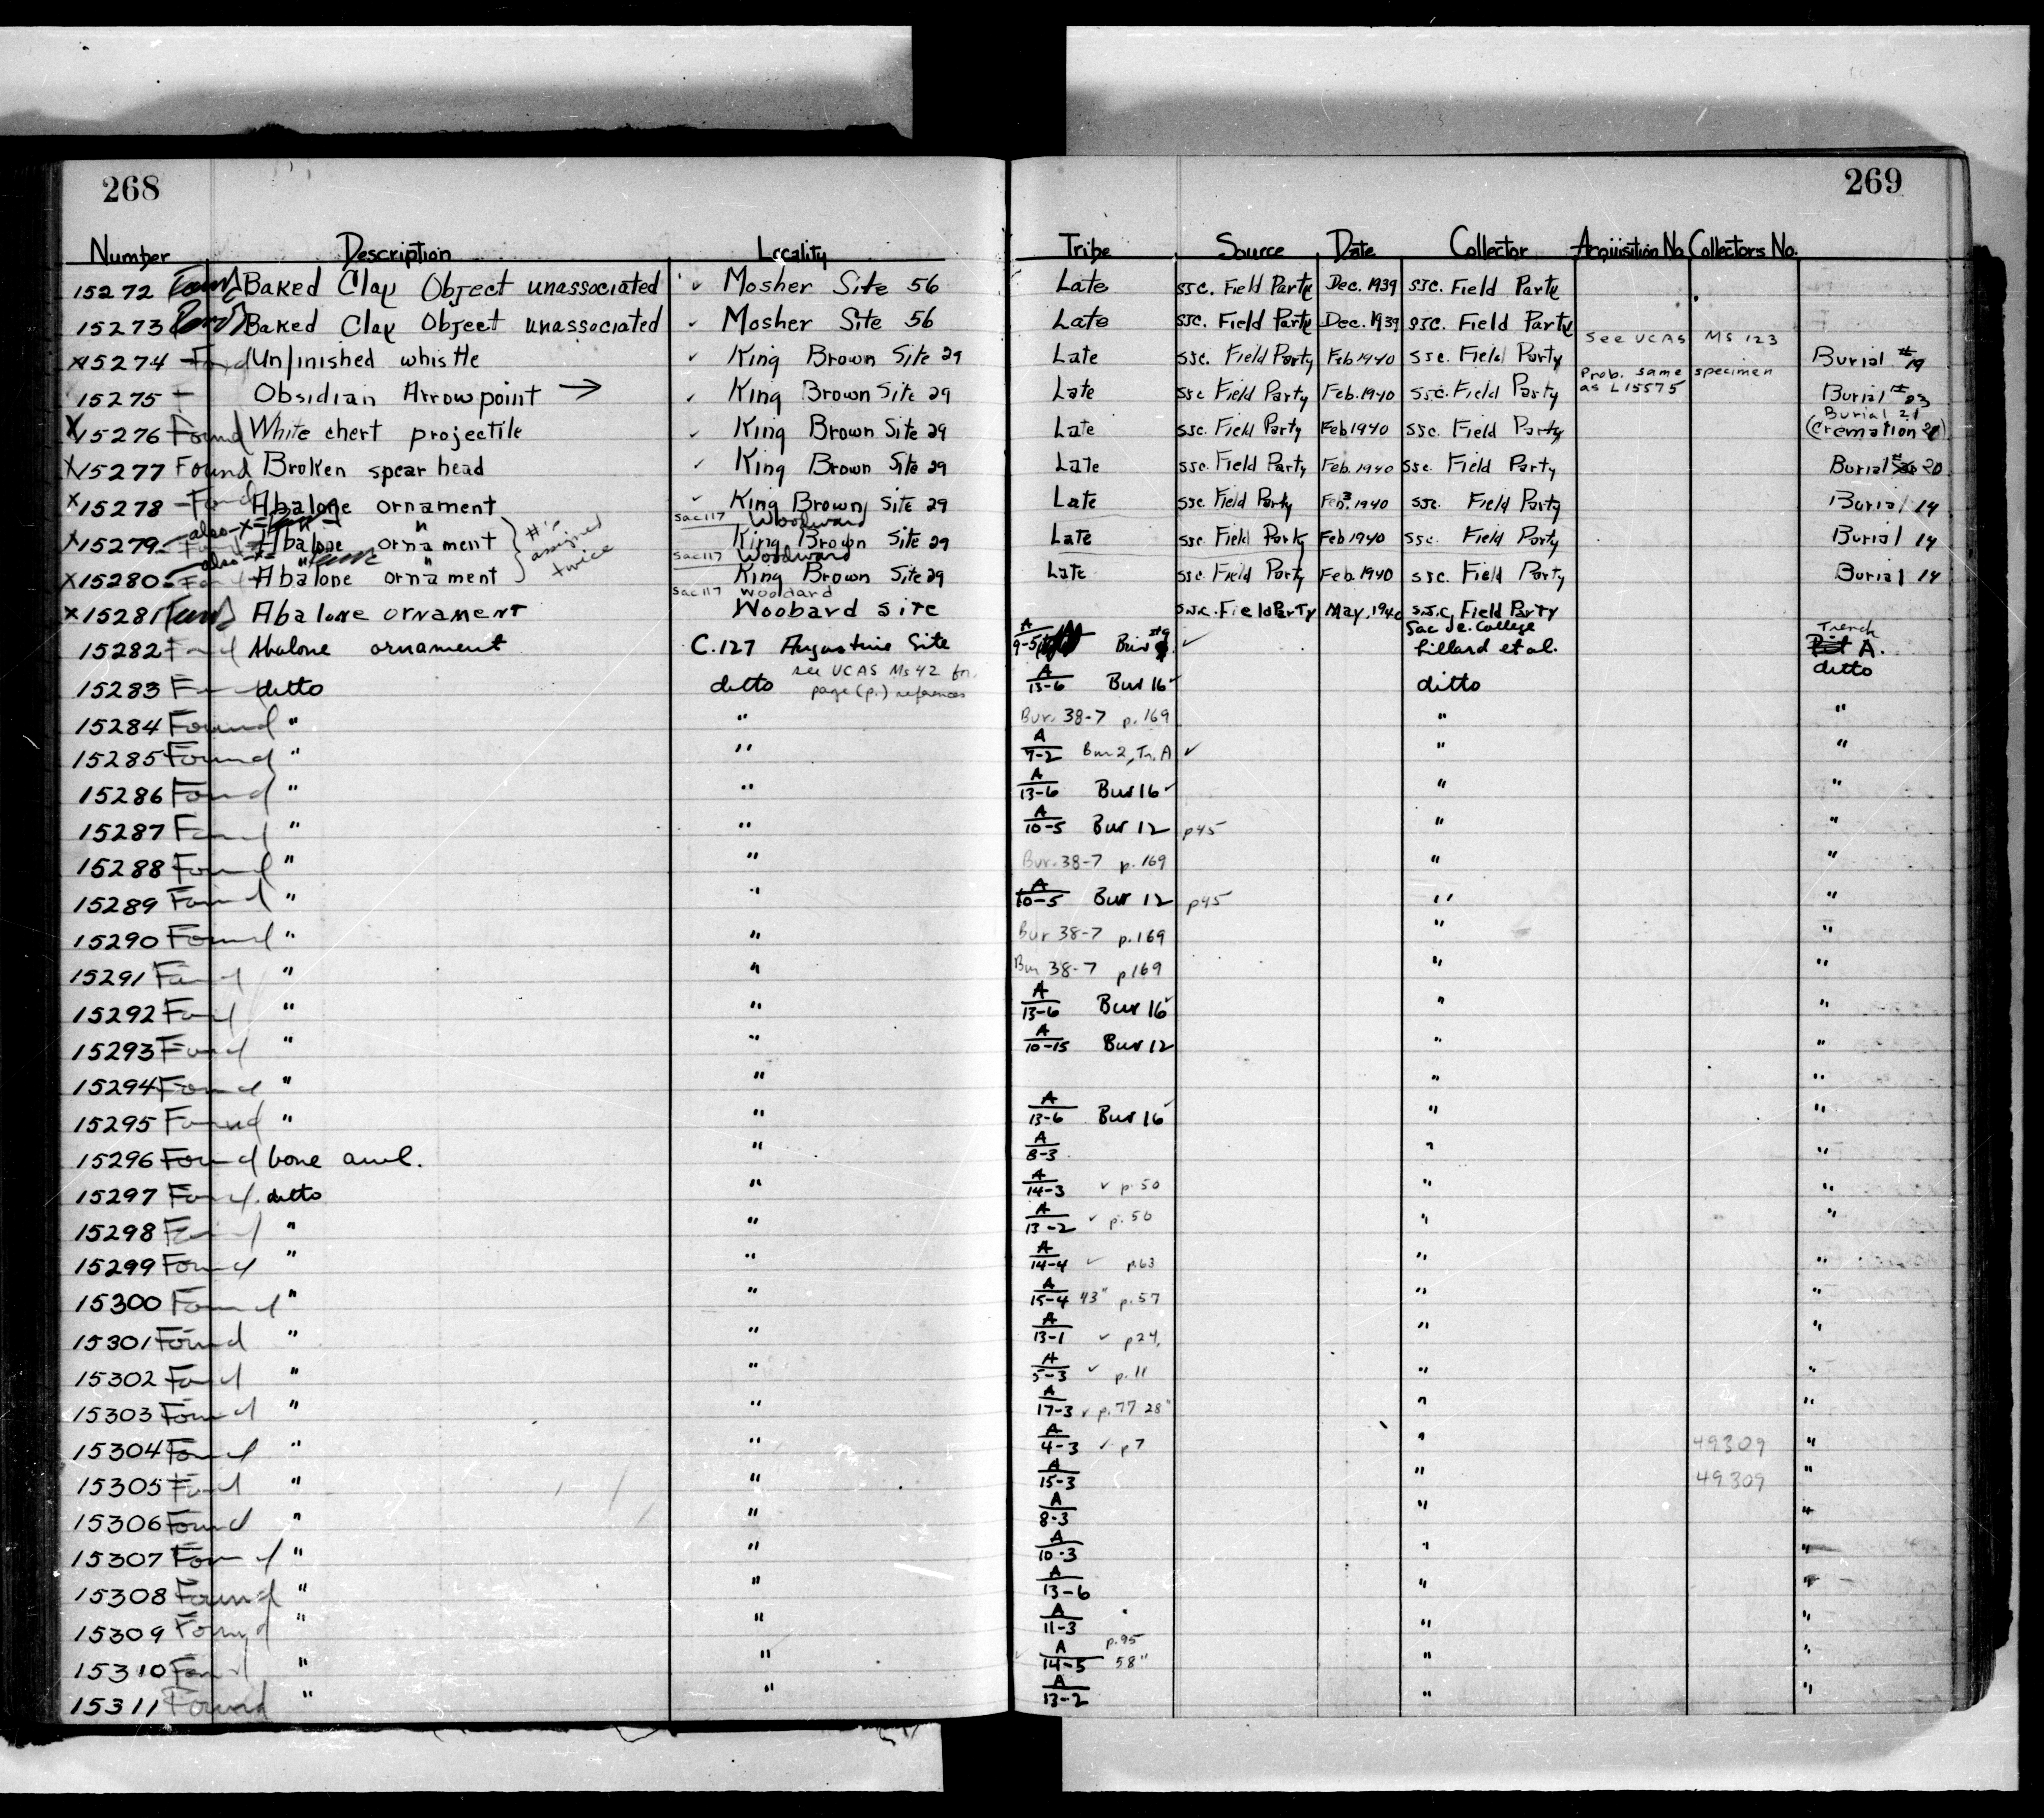 268
269
Number Description Locality Tribe Source Date Collector Acquisition No. Collectors No.
15272 Found Baked Clay Object unassociated ✓ Mosher Site 56 Late SJC. Field Party Dec. 1939 SJC. Field Party
15273 Found Baked Clay Object unassociated ✓ Mosher Site 56 Late SJC. Field Party Dec. 1939 SJC. Field Party
See UCAS Ms 123
x15274 Found Unfinished whistle ✓ King Brown Site 29 Late SJC. Field Party Feb 1940 SJC. Field Party Burial #19
Prob. same specimen
as L15575
15275 – Obsidian Arrowpoint → ✓ King Brown Site 29 Late SJC Field Party Feb. 1940 SJC. Field Party Burial #23
Burial 21
x15276 Found White chert projectile ✓ King Brown Site 29 Late SJC. Field Party Feb 1940 SJC. Field Party (Cremation 21)
x15277 Found Broken spear head ✓ King Brown Site 29 Late SJC. Field Party Feb. 1940 SJC. Field Party Burial 20
x15278 – Found Abalone ornament ✓ King Brown Site 29 Late SJC Field Party Feb. 1940 SJC. Field Party Burial 14
also–x= " " Sac 117 Woodward
x15279 – Found Abalone ornament King Brown Site 29 Late SJC Field Party Feb 1940 SJC. Field Party Burial 14
#'s assigned twice
also x= " " Sac 117 Woodward
x15280 – Found Abalone ornament King Brown Site 29 Late SJC Field Party Feb. 1940 SJC. Field Party Burial 14
Sac 117 Woodard
x15281 Found Abalone ornament Woobard site S.J.C. Field Party May, 1940 S.J.C. Field Party
Sac Jr. College
15282 Found Abalone ornament C.127 Augustine Site A/9-5 Bur #9 ✓ Lillard et al. Trench A.
see UCAS Ms 42 for
page (p.) references
15283 Found ditto ditto A/13-6 Bur 16 ✓ ditto ditto
15284 Found " " Bur. 38-7 p. 169 " "
15285 Found " " A/7-2 Bur 2, Tr. A ✓ " "
15286 Found " " A/13-6 Bur 16 ✓ " "
15287 Found " " A/10-5 Bur 12 p45 " "
15288 Found " " Bur. 38-7 p. 169 " "
15289 Found " " A/10-5 Bur 12 p45 " "
15290 Found " " Bur 38-7 p. 169 " "
15291 Found " " Bur 38-7 p169 " "
15292 Found " " A/13-6 Bur 16 ✓ " "
15293 Found " " A/10-15 Bur 12 " "
15294 Found " " " "
15295 Found " " A/13-6 Bur 16 ✓ " "
15296 Found bone awl. " A/8-3 " "
15297 Found ditto " A/14-3 ✓ p. 50 " "
15298 Found " " A/13-2 ✓ p. 50 " "
15299 Found " " A/14-4 ✓ p.63 " "
15300 Found " " A/15-4 43" p. 57 " "
15301 Found " " A/13-1 ✓ p24. " "
15302 Found " " A/5-3 ✓ p. 11 " "
15303 Found " " A/17-3 ✓ p. 77 28" " "
15304 Found " " A/4-3 ✓ p7 " 49309 "
15305 Found " " A/15-3 " 49309 "
15306 Found " " A/8-3 " "
15307 Found " " A/10-3 " "
15308 Found " " A/13-6 " "
15309 Found " " A/11-3 " "
15310 Found " " A/14-5 p.95 58" " "
15311 Found " " A/13-2 " "